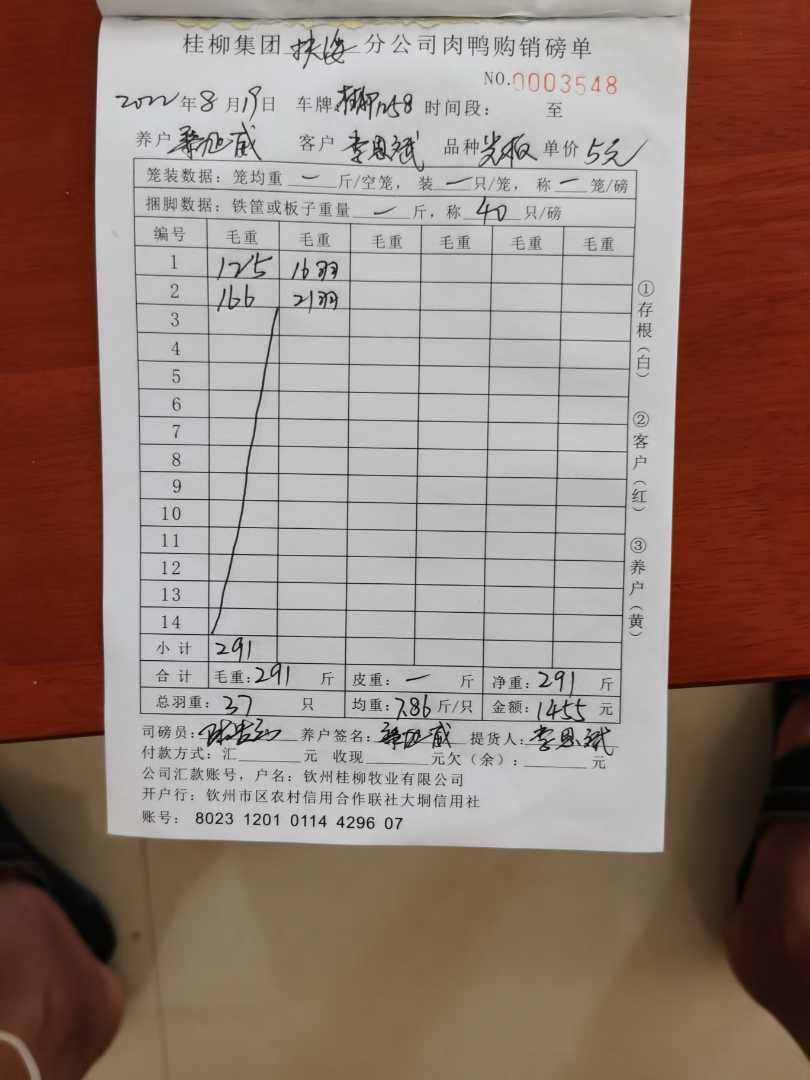 桂柳集团 扶海 分公司肉鸭购销磅单
NO.0003548
2022年8月19日 车牌: 1258 时间段: 至
养户 威 客户 李恩斌 品种 光板 单价 5元
笼装数据: 笼均重 一 斤/空笼, 装 一 只/笼, 称 一 笼/磅
捆脚数据: 铁筐或板子重量 一 斤, 称 40 只/磅
编号 毛重 毛重 毛重 毛重 毛重 毛重
1 125 16羽
2 166 21羽
3
4
5
6
7
8
9
10
11
12
13
14
小计 291
合计 毛重: 291 斤 皮重: 一 斤 净重: 291 斤
总羽重: 37 只 均重: 7.86 斤/只 金额: 1455 元
司磅员: 养户签名: 威 提货人: 李恩斌
付款方式: 汇 元 收现 元欠(余): 元
公司汇款账号, 户名: 钦州桂柳牧业有限公司
开户行: 钦州市区农村信用合作联社大垌信用社
账号: 8023 1201 0114 4296 07
①存根(白) ②客户(红) ③养户(黄)